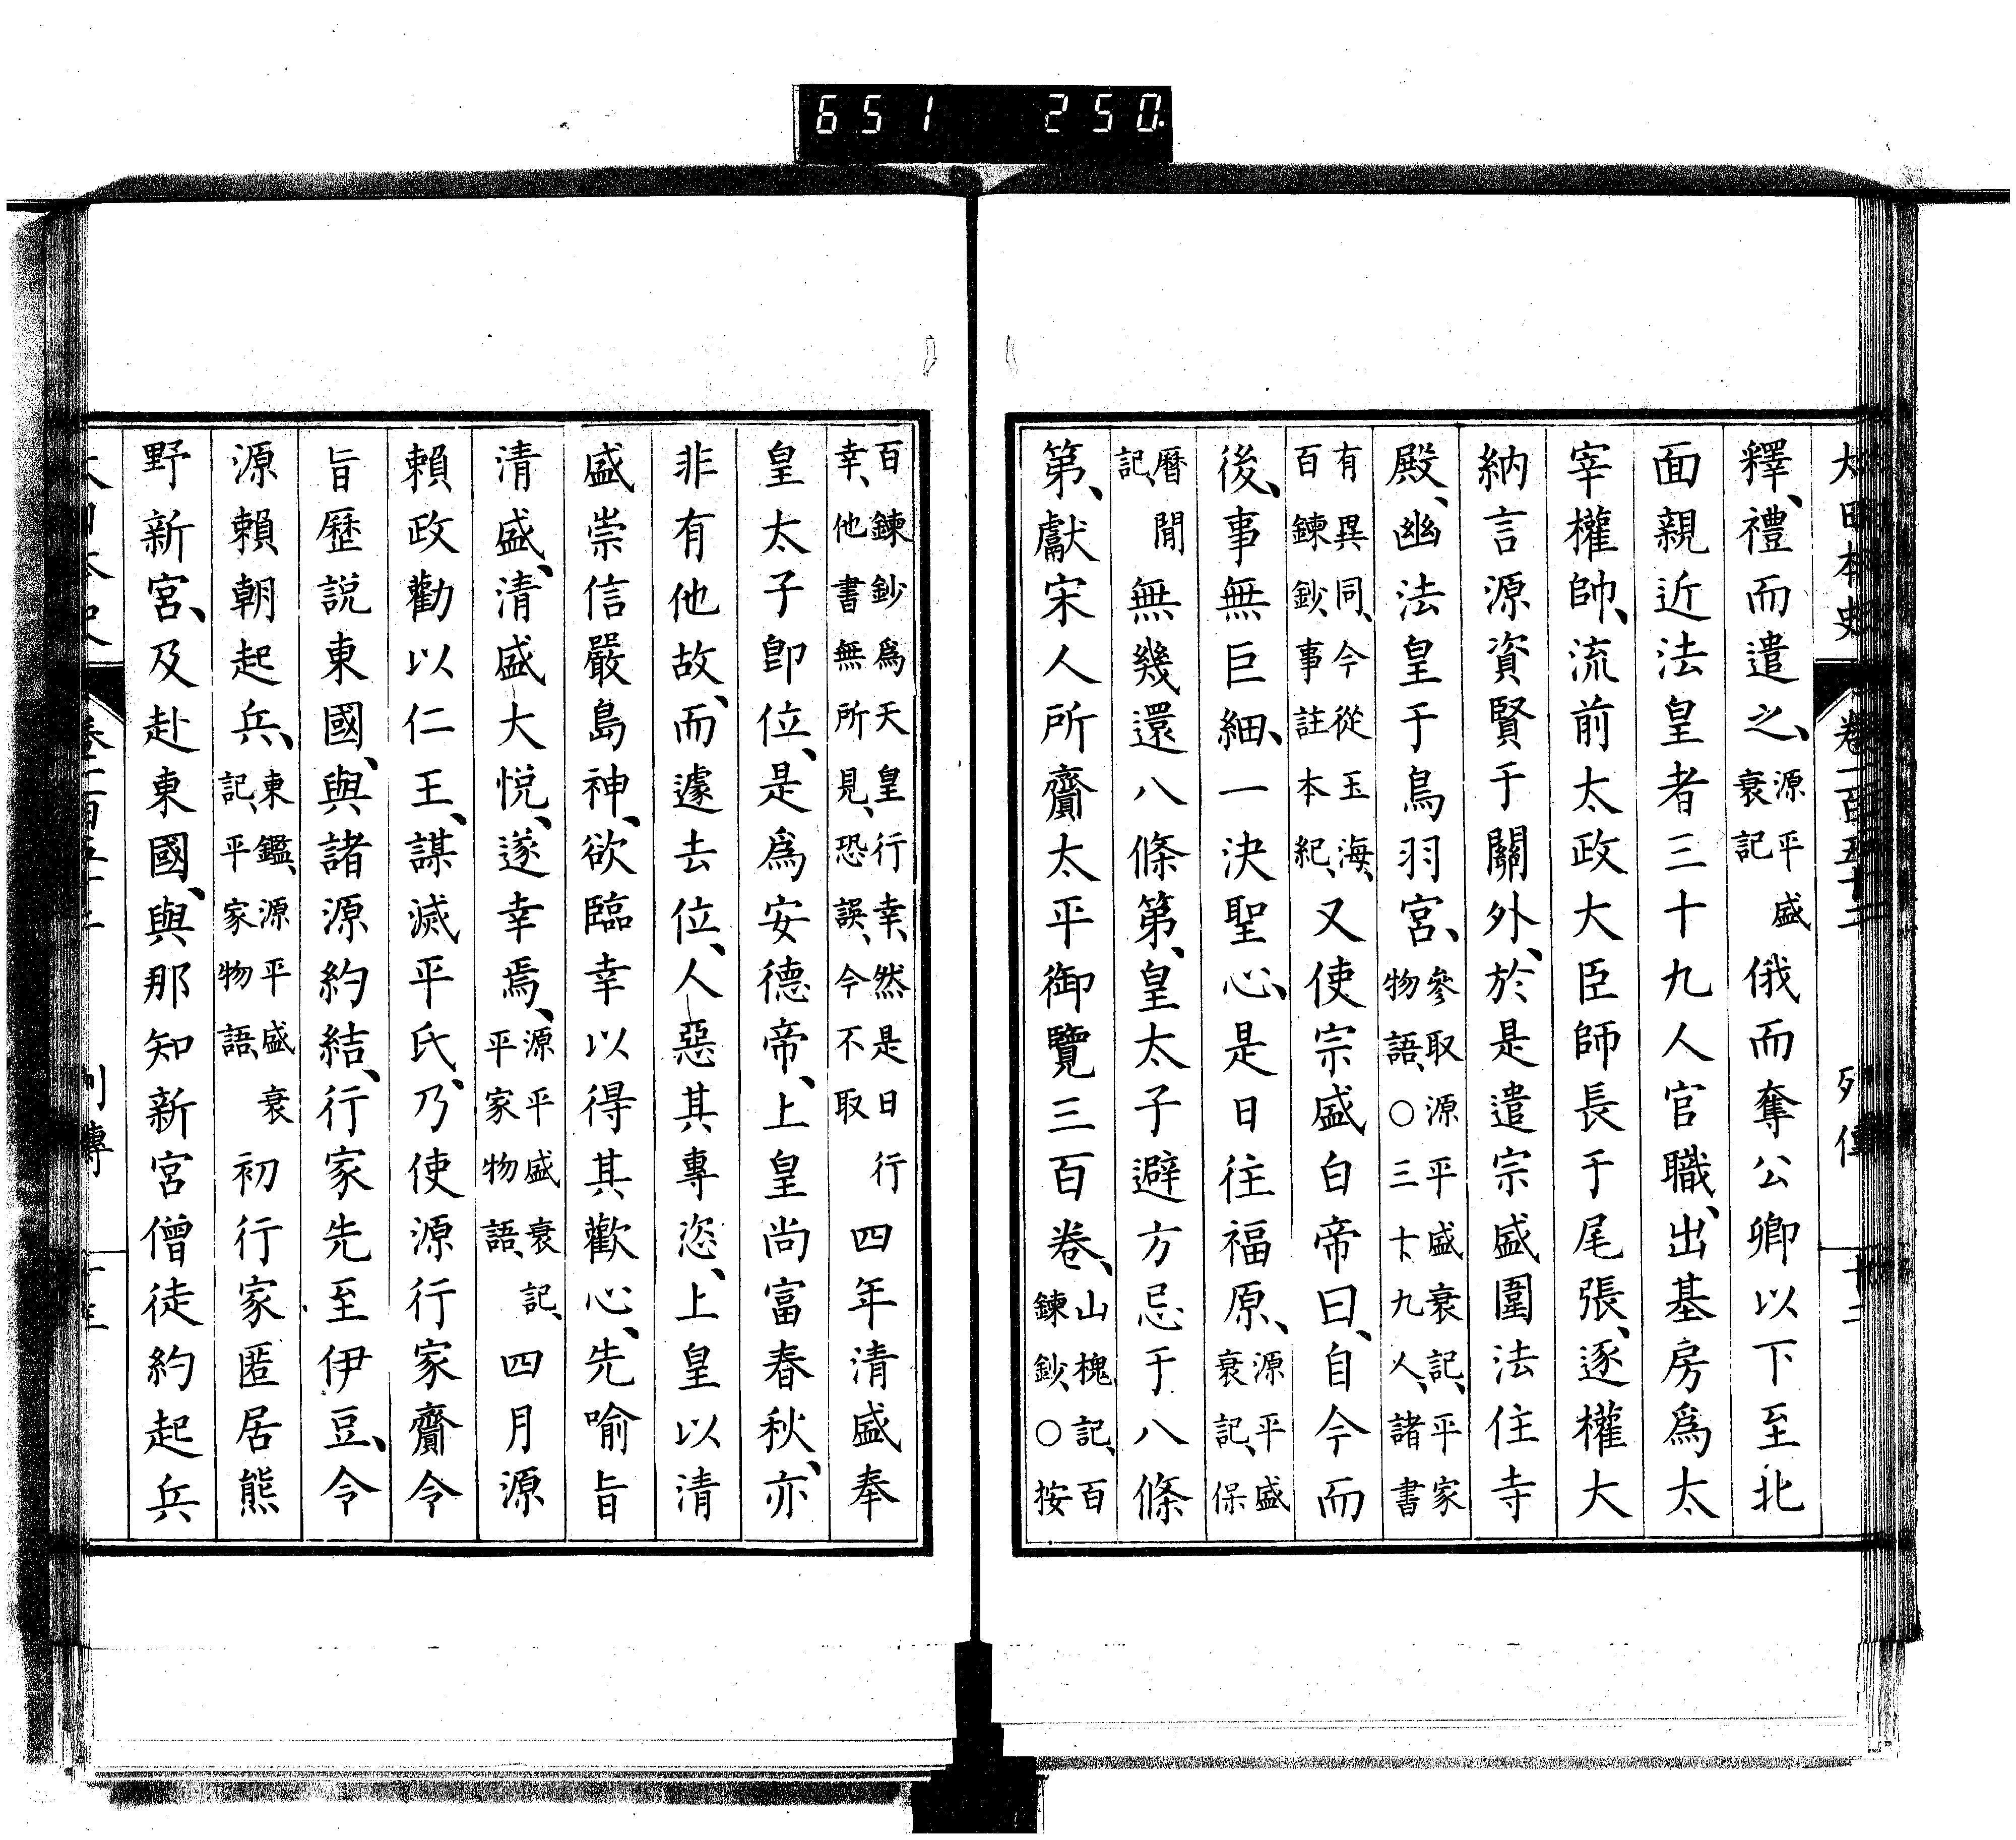 651 250
大日本史 卷一百五十二 列傳
釋、禮而遣之、源平盛衰記俄而奪公卿以下至北
面親近法皇者三十九人官職、出基房爲太
宰權帥、流前太政大臣師長于尾張、逐權大
納言源資賢于關外、於是遣宗盛圍法住寺
殿、幽法皇于鳥羽宮、參取源平盛衰記、平家物語、○三十九人、諸書
有異同、今從玉海、百鍊鈔、事註本紀、又使宗盛白帝曰、自今而
後、事無巨細、一決聖心、是日往福原、源平盛衰記、保
曆閒記、無幾還八條第、皇太子避方忌于八條
第、獻宋人所齎太平御覽三百卷、山槐記、百鍊鈔、○按
百鍊鈔爲天皇行幸、然是日行幸、他書無所見、恐誤、今不取四年清盛奉
皇太子卽位、是爲安德帝、上皇尚富春秋、亦
非有他故、而遽去位、人惡其專恣、上皇以清
盛崇信嚴島神、欲臨幸以得其歡心、先喻旨
清盛、清盛大悅、遂幸焉、源平盛衰記、平家物語、四月源
賴政勸以仁王、謀滅平氏、乃使源行家齎令
旨歷說東國、與諸源約結、行家先至伊豆、令
源賴朝起兵、東鑑、源平盛衰記、平家物語、初行家匿居熊
野新宮、及赴東國、與那知新宮僧徒約起兵
列傳